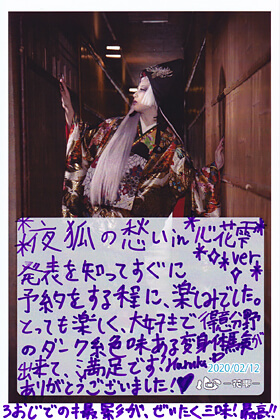 *夜狐の愁いin心花雫*
*◇*ver*
発表を知ってすぐに
予約をする程に、楽しみでした。
とっても楽しく、大好きで得意分野
のダーク系色味ある変身体験が
出来て、満足です! Haruka
ありがとうございました!♡
2020/02/12
心-花雫-
3おじでの撮影が、ぜいたく